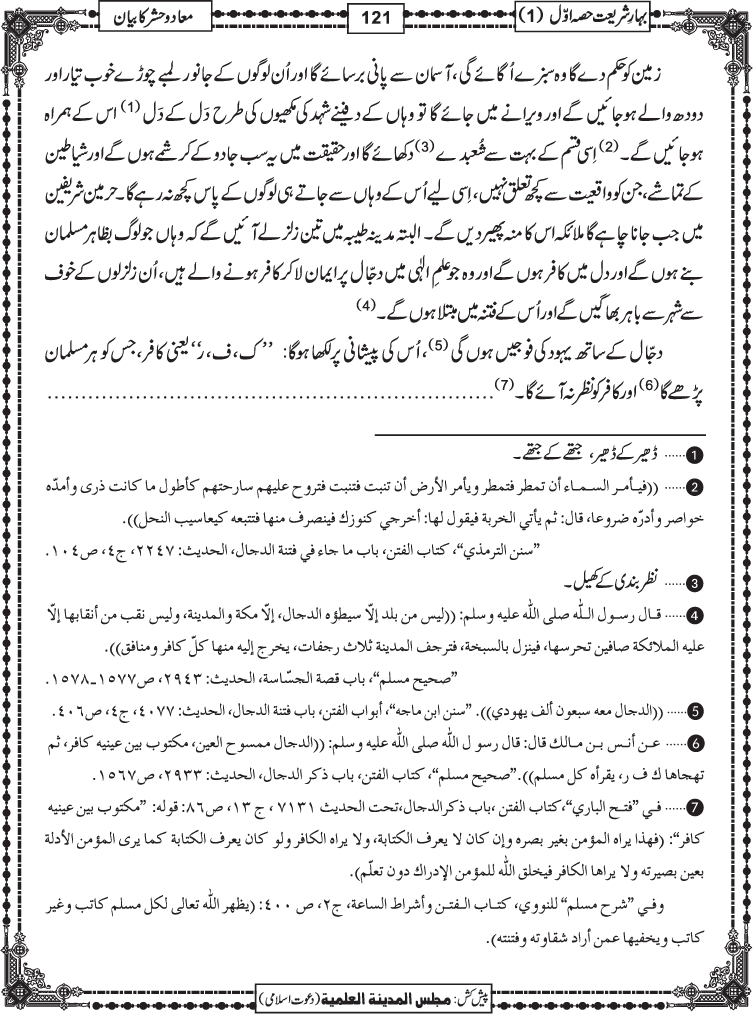 بہارِ شریعت حصہ اوّل (1)
121
معاد و حشر کا بیان
زمین کو حکم دے گا وہ سبزے اُگائے گی، آسمان سے پانی برسائے گا اور اُن لوگوں کے جانور لمبے چوڑے خوب تیار اور
دودھ والے ہوجائیں گے اور ویرانے میں جائے گا تو وہاں کے دفینے شہد کی مکھیوں کی طرح دَل کے دَل (1) اس کے ہمراہ
ہوجائیں گے۔ (2) اِسی قسم کے بہت سے شُعبدے (3) دکھائے گا اور حقیقت میں یہ سب جادو کے کرشمے ہوں گے اور شیاطین
کے تماشے، جن کو واقعیت سے کچھ تعلق نہیں، اِسی لیے اُس کے وہاں سے جاتے ہی لوگوں کے پاس کچھ نہ رہے گا۔ حرمین شریفین
میں جب جانا چاہے گا ملائکہ اس کا منہ پھیر دیں گے۔ البتہ مدینہ طیبہ میں تین زلزلے آئیں گے کہ وہاں جو لوگ بظاہر مسلمان
بنے ہوں گے اور دل میں کافر ہوں گے اور وہ جو علمِ الٰہی میں دجّال پر ایمان لا کر کافر ہونے والے ہیں، اُن زلزلوں کے خوف
سے شہر سے باہر بھاگیں گے اور اُس کے فتنہ میں مبتلا ہوں گے۔ (4)
دجّال کے ساتھ یہود کی فوجیں ہوں گی (5)، اُس کی پیشانی پر لکھا ہوگا: ’’ک، ف، ر‘‘ یعنی کافر، جس کو ہر مسلمان
پڑھے گا (6) اور کافر کو نظر نہ آئے گا۔ (7) ................................................................
1 ...... ڈھیر کے ڈھیر، جتھے کے جتھے۔
2 ...... ((فيأمر السماء أن تمطر فتمطر ويأمر الأرض أن تنبت فتنبت فتروح عليهم سارحتهم كأطول ما كانت ذرى وأمدّه
خواصر وأدرّه ضروعا، قال: ثم يأتي الخربة فيقول لها: أخرجي كنوزك فينصرف منها فتتبعه كيعاسيب النحل)).
”سنن الترمذي“، كتاب الفتن، باب ما جاء في فتنة الدجال، الحديث: ٢٢٤٧، ج٤، ص١٠٤.
3 ...... نظر بندی کے کھیل۔
4 ...... قال رسول اللّٰه صلى اللّٰه عليه وسلم: ((ليس من بلد إلّا سيطؤه الدجال، إلّا مكة والمدينة، وليس نقب من أنقابها إلّا
عليه الملائكة صافين تحرسها، فينزل بالسبخة، فترجف المدينة ثلاث رجفات، يخرج إليه منها كلّ كافر ومنافق)).
”صحيح مسلم“، باب قصة الجسّاسة، الحديث: ٢٩٤٣، ص١٥٧٧-١٥٧٨.
5 ...... ((الدجال معه سبعون ألف يهودي)). ”سنن ابن ماجه“، أبواب الفتن، باب فتنة الدجال، الحديث: ٤٠٧٧، ج٤، ص٤٠٦.
6 ...... عن أنس بن مالك قال: قال رسول اللّٰه صلى اللّٰه عليه وسلم: ((الدجال ممسوح العين، مكتوب بين عينيه كافر، ثم
تهجاها ك ف ر، يقرأه كل مسلم)). ”صحيح مسلم“، كتاب الفتن، باب ذكر الدجال، الحديث: ٢٩٣٣، ص١٥٦٧.
7 ...... في ”فتح الباري“، كتاب الفتن، باب ذكر الدجال، تحت الحديث ٧١٣١، ج١٣، ص٨٦: قوله: ”مكتوب بين عينيه
كافر“: (فهذا يراه المؤمن بغير بصره وإن كان لا يعرف الكتابة، ولا يراه الكافر ولو كان يعرف الكتابة كما يرى المؤمن الأدلة
بعين بصيرته ولا يراها الكافر فيخلق اللّٰه للمؤمن الإدراك دون تعلّم).
وفي ”شرح مسلم“ للنووي، كتاب الفتن وأشراط الساعة، ج٢، ص ٤٠٠: (يظهر اللّٰه تعالى لكل مسلم كاتب وغير
كاتب ويخفيها عمن أراد شقاوته وفتنته).
پیش کش: مجلس المدينة العلمية (دعوتِ اسلامی)